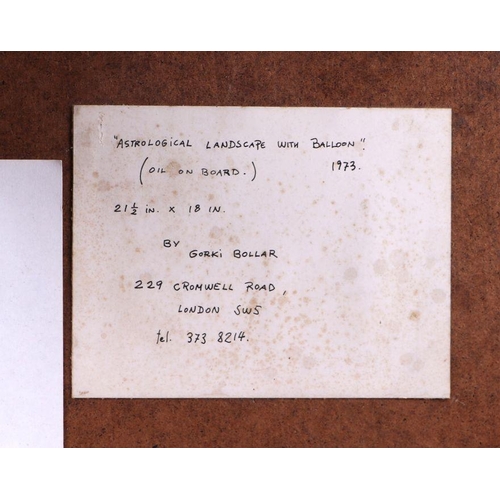 "ASTROLOGICAL LANDSCAPE WITH BALLOON".
(OIL ON BOARD.) 1973.
21½ in. x 18 IN.
BY
GORKI BOLLAR
229 CROMWELL ROAD,
LONDON SW5
tel. 373 8214.